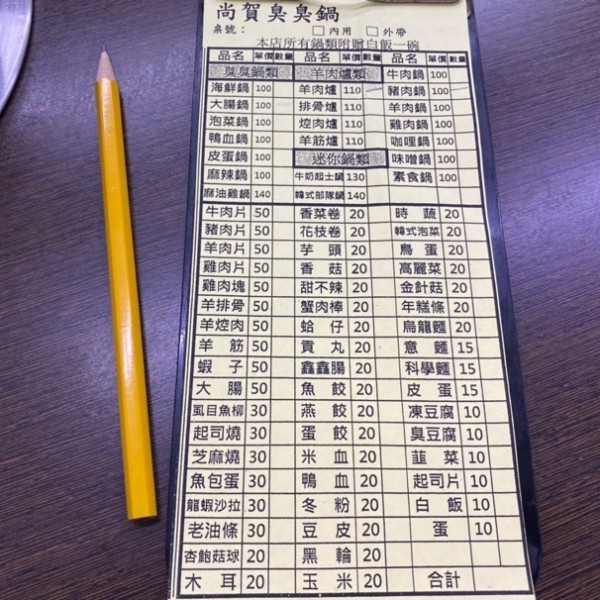 尚賀臭臭鍋
桌號： □內用 □外帶
本店所有鍋類附贈白飯一碗
品名 單價 數量 品名 單價 數量 品名 單價 數量
臭臭鍋類 羊肉爐類 牛肉鍋 100
海鮮鍋 100 羊肉爐 110 豬肉鍋 100
大腸鍋 100 排骨爐 110 羊肉鍋 100
泡菜鍋 100 焢肉爐 110 雞肉鍋 100
鴨血鍋 100 羊筋爐 110 咖哩鍋 100
皮蛋鍋 100 迷你鍋類 味噌鍋 100
麻辣鍋 100 牛奶起士鍋 130 素食鍋 100
麻油雞鍋 140 韓式部隊鍋 140
牛肉片 50 香菜卷 20 時蔬 20
豬肉片 50 花枝卷 20 韓式泡菜 20
羊肉片 50 芋頭 20 鳥蛋 20
雞肉片 50 香菇 20 高麗菜 20
雞肉塊 50 甜不辣 20 金針菇 20
羊排骨 50 蟹肉棒 20 年糕條 20
羊焢肉 50 蛤仔 20 烏龍麵 20
羊筋 50 貢丸 20 意麵 15
蝦子 50 鑫鑫腸 20 科學麵 15
大腸 50 魚餃 20 皮蛋 15
虱目魚柳 30 燕餃 20 凍豆腐 10
起司燒 30 蛋餃 20 臭豆腐 10
芝麻燒 30 米血 20 韮菜 10
魚包蛋 30 鴨血 20 起司片 10
龍蝦沙拉 30 冬粉 20 白飯 10
老油條 30 豆皮 20 蛋 10
杏鮑菇球 20 黑輪 20
木耳 20 玉米 20 合計